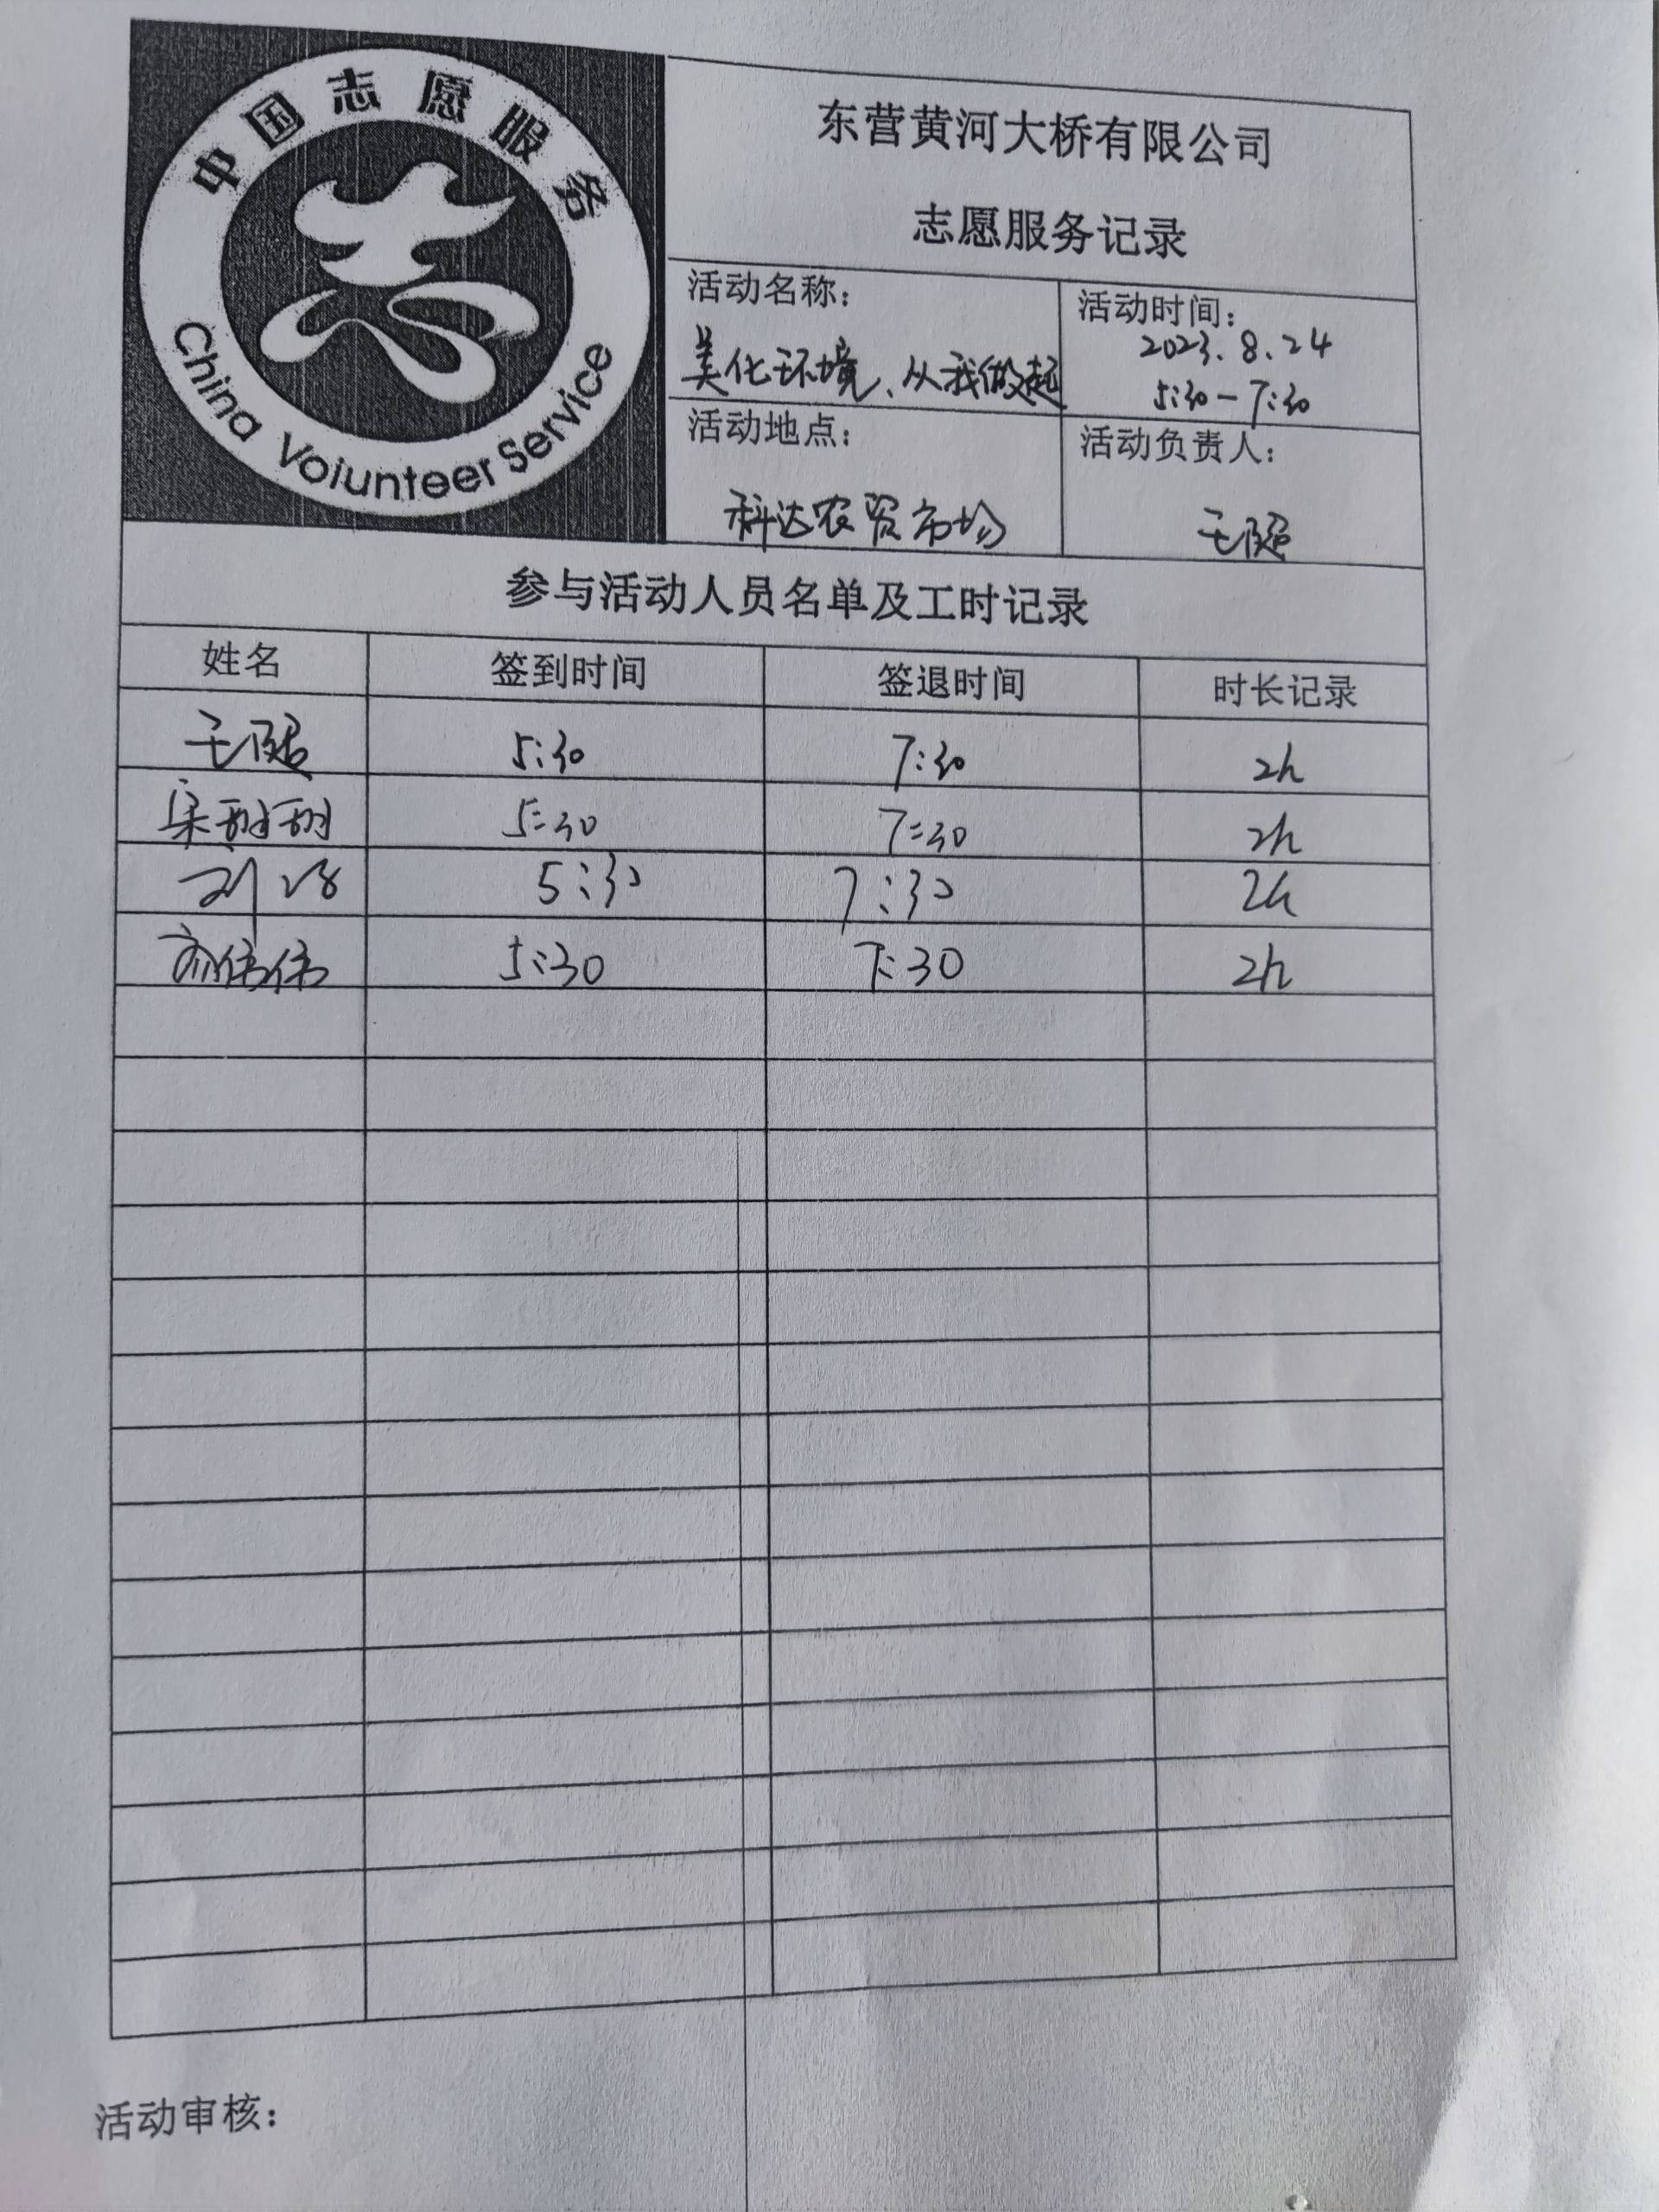 中国志愿服务
China Volunteer Service
东营黄河大桥有限公司
志愿服务记录
活动名称：
美化环境、从我做起
活动时间：
2023.8.24
5:30-7:30
活动地点：
科达农贸市场
活动负责人：
参与活动人员名单及工时记录
姓名 签到时间 签退时间 时长记录
5:30 7:30 2h
5:30 7:30 2h
5:30 7:30 2h
伟伟 5:30 7:30 2h
活动审核：